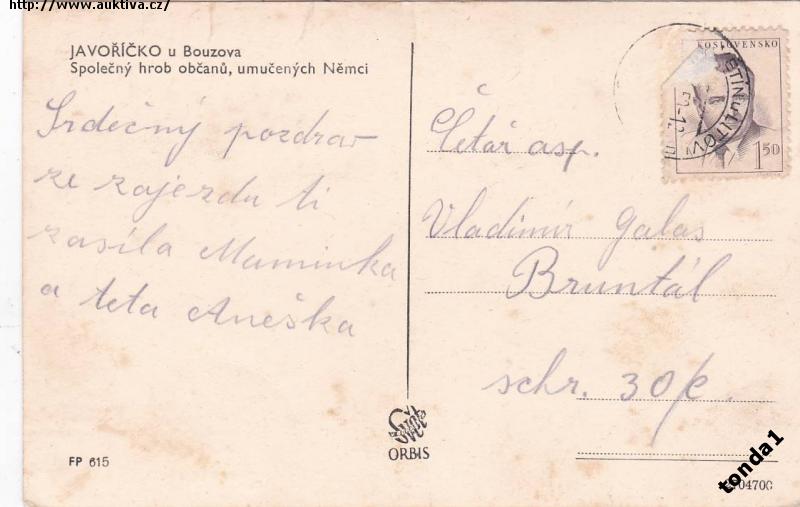 http://www.auktiva.cz/
JAVOŘÍČKO u Bouzova
Společný hrob občanů, umučených Němci
Srdečný pozdrav
ze zajezdu ti
zasíla Maminka
a teta Aneška
KOSLOVENSKO
1 50
Četař asp.
Vladimír Galas
Bruntál
schr. 30/c.
Svět
ORBIS
FP 615
04700
tonda1